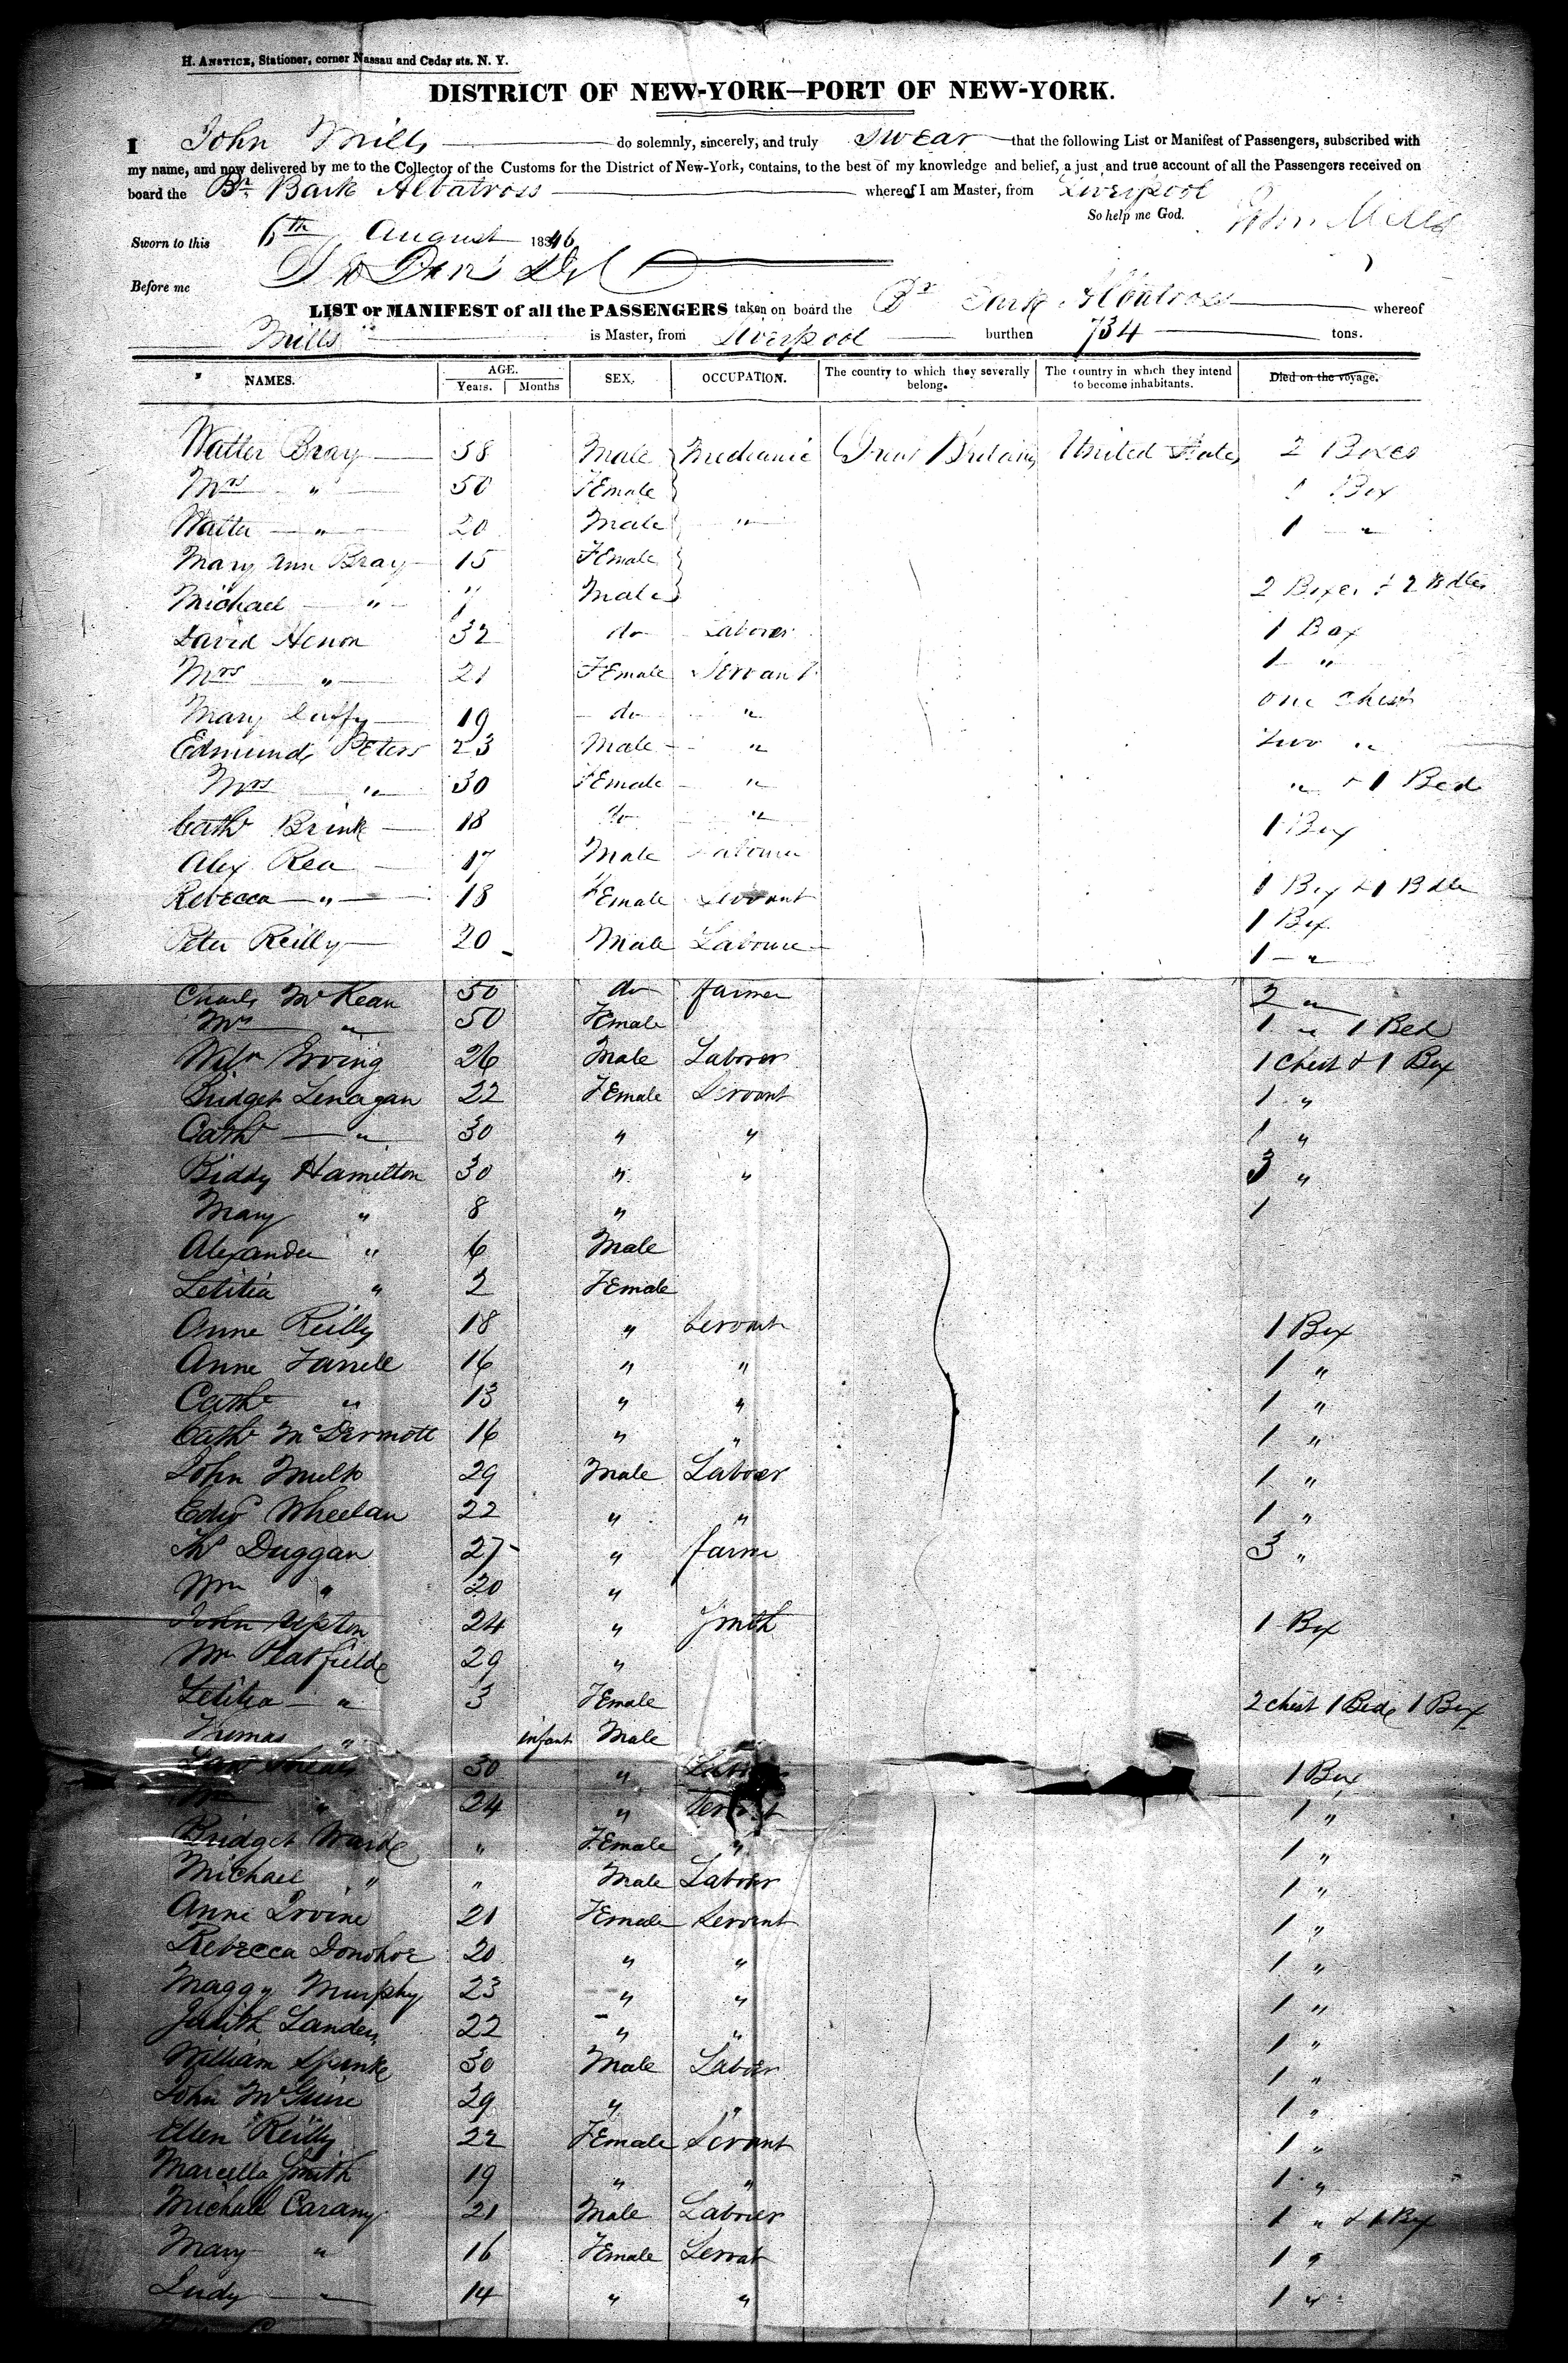 H. ANSTICE, Stationer, corner Nassau and Cedar sts. N. Y.
DISTRICT OF NEW-YORK—PORT OF NEW-YORK.
I John Mills do solemnly, sincerely, and truly swear that the following List or Manifest of Passengers, subscribed with
my name, and now delivered by me to the Collector of the Customs for the District of New-York, contains, to the best of my knowledge and belief, a just and true account of all the Passengers received on
board the Br. Bark Albatross whereof I am Master, from Liverpool
So help me God. John Mills
Sworn to this 6th August 1846
Before me
LIST or MANIFEST of all the PASSENGERS taken on board the Br Bark Albatross whereof
Mills is Master, from Liverpool burthen 734 tons.
NAMES. AGE. Years. Months SEX. OCCUPATION. The country to which they severally belong. The country in which they intend to become inhabitants. Died on the voyage.
Walter Bray 58 Male Mechanic Great Britain United States 2 Boxes
Mrs " 50 Female 1 Box
Walter " 20 Male " 1 "
Mary Ann Bray 15 Female
Michael " Male 2 Boxes & 2 Bdles
David Henon 32 do Laborer 1 Box
Mrs " 21 Female Servant 1 "
Mary Duffy 19 do " one chest
Edmund Peters 23 Male " two "
Mrs " 30 Female " " & 1 Bed
Cath Brink 18 do " 1 Box
Alex Rea 17 Male Labourer
Rebecca " 18 Female Servant 1 Box & 1 Bdle
Peter Reilly 20 Male Labourer 1 Box
1 "
Charls McKean 50 do farmer 2 "
Mrs " 50 Female 1 " 1 Bed
Willm Irving 26 Male Laborer 1 Chest & 1 Box
Bridget Lenagan 22 Female Servant 1 "
Cath " 30 " " 1 "
Biddy Hamilton 30 " " 3 "
Mary " 8 " 1
Alexander " 6 Male
Letitia " 2 Female
Anne Reilly 18 " Servant 1 Box
Anne Farrell 16 " " 1 "
Cath " 13 " " 1 "
Cath McDermott 16 " " 1 "
John 29 Male Laborer 1 "
Edwd Wheelan 22 " " 1 "
Ths Duggan 27 " farmer 3 "
Wm " 20 "
John Upton 24 " Smith 1 Box
Wm 29 "
Letitia " 3 Female 2 chest 1 Bede 1 Box
Thomas " infant Male
30 " 1 Box
" 24 " Servant 1 "
Bridget Warde " Female " 1 "
Michael " " Male Laborer 1 "
Anne Irvine 21 Female Servant 1 "
Rebecca Donohoe 20 " " 1 "
Maggy Murphy 23 " " 1 "
Judith Landers 22 " " 1 "
William Spinke 30 Male Laborer 1 "
John McGuire 29 " " 1 "
Ellen Reilly 22 Female Servant 1 "
Marcella Smith 19 " " 1 "
Michael Carany 21 Male Labourer 1 " & 1 Box
Mary " 16 Female Servant 1 "
Judy " 14 " " 1 "